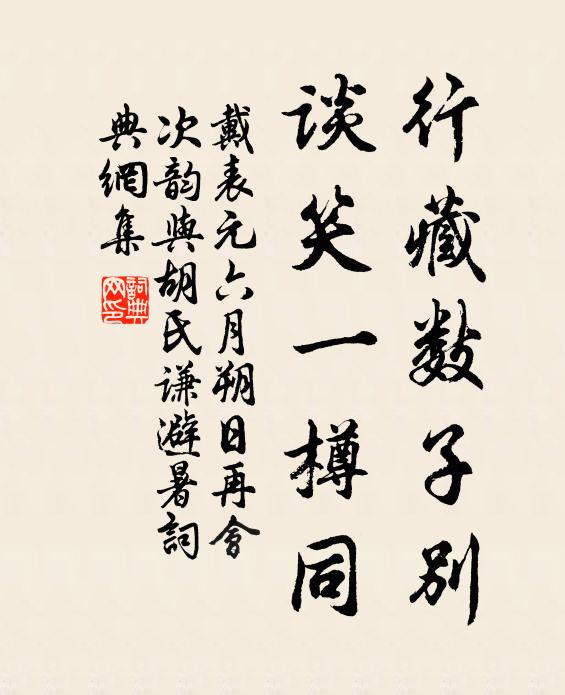 行藏数子别
谈笑一樽同
戴表元六月朔日再會
次韵與胡氏谦避暑詞
典網集
詞典
网印